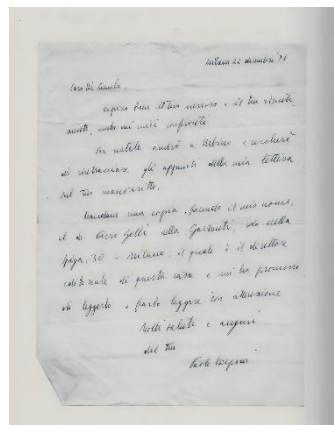 Milano 22 dicembre '71
Caro Di
capisco bene il tuo nervoso e il tuo risenti
mento, anche nei miei confronti
Per natale andrò a Urbino e cercherò
di rintracciare gli appunti della mia lettura
del tuo manoscritto.
Mandane una copia, facendo il mio nome,
al dr. Piero Gelli della Garzanti, via della
Spiga, 30 - Milano, il quale è il direttore
editoriale di questa casa e mi ha promesso
di leggerlo e farlo leggere con attenzione
Molti saluti e auguri
dal tuo
Paolo Volponi